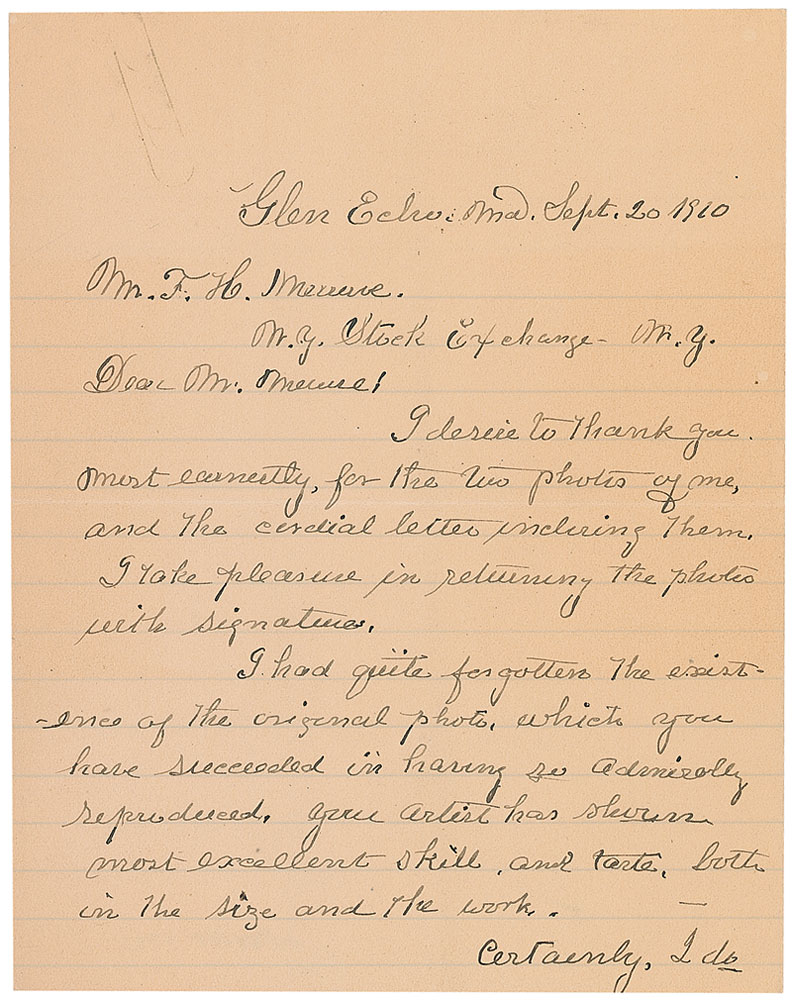 Glen Echo. Md. Sept. 20 1910
Mr. F. H. Meserve.
N.Y. Stock Exchange - N. Y.
Dear Mr. Meserve!
I desire to thank you.
most earnestly, for the two photos of me,
and the cordial letter inclosing them.
I take pleasure in returning the photo
with signature.
I had quite forgotten the exist-
-ence of the original photo, which you
have succeeded in having so admirably
reproduced. your artist has shown
most excellent skill, and taste, both
in the size and the work. —
Certainly, I do